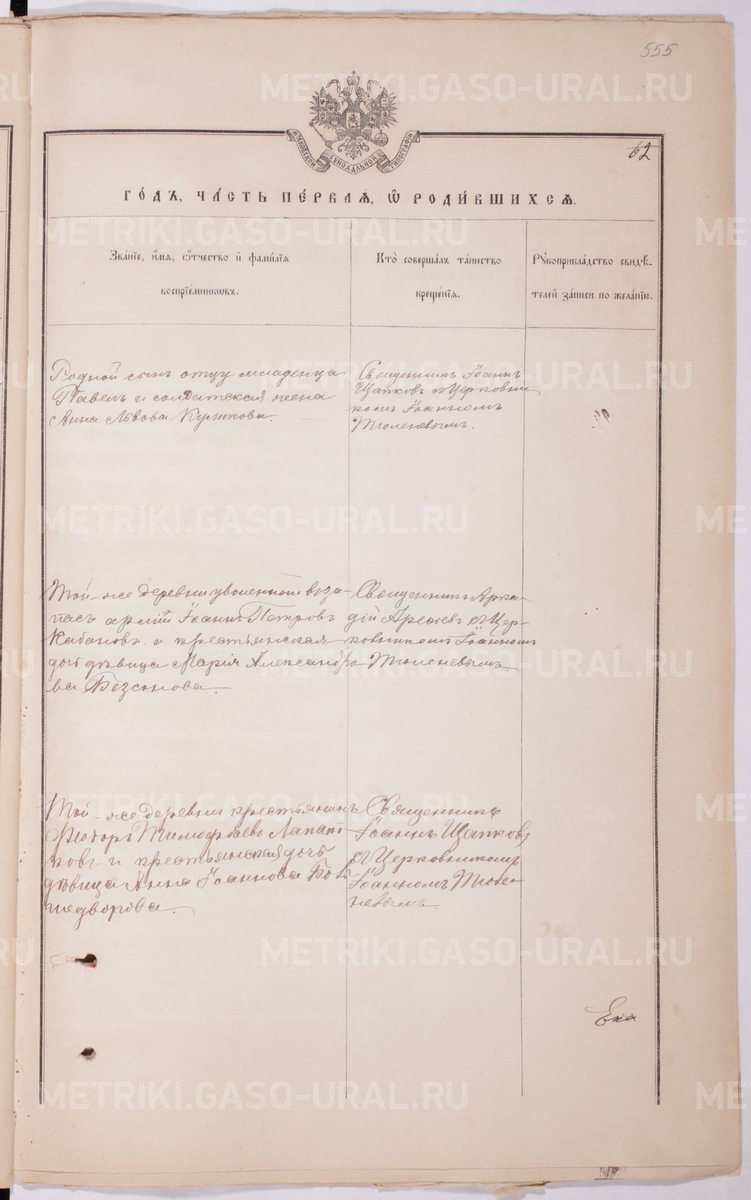 555
62
МОСКОВСКОЙ СѴНОДАЛЬНОЙ ТИПОГРАФІИ
ГО́ДЪ, ЧА́СТЬ ПЕ́РВАѦ, Ѡ҆ РОДИ́ВШИХСѦ.
Зва́ніе, и҆́мѧ, ѻ҆́тчество и҆ фами́лїѧ
воспрїе́мникѡвъ.
Кто̀ соверша́лъ та́инство
креще́нїѧ.
Рꙋкоприкла́дство свидѣ́-
телей за́писи по жела́нїю.
Родной сынъ отцу младенца
Павелъ и солдатская жена
Анна Львова Куликова.
Священникъ Іоаннъ
Щапковъ съ Церковни
комъ Іоанномъ
Тюленевымъ.
Той-же деревни уволенной въ за-
пасъ арміи Іоаннъ Петровъ
Кабановъ и крестьянская
дочь дѣвица Марія Александро-
ва Безсонова.
Священникъ Арка-
дій Арефьевъ съ Цер-
ковникомъ Іоанномъ
Тюленевымъ.
Той-же деревни крестьянинъ
Ѳеодоръ Тимофѣевъ
и крестьянская дочь
дѣвица Анна Іоаннова
Священникъ
Іоаннъ Щапковъ
съ Церковникомъ
Іоанномъ Тюле-
невымъ
METRIKI.GASO-URAL.RU